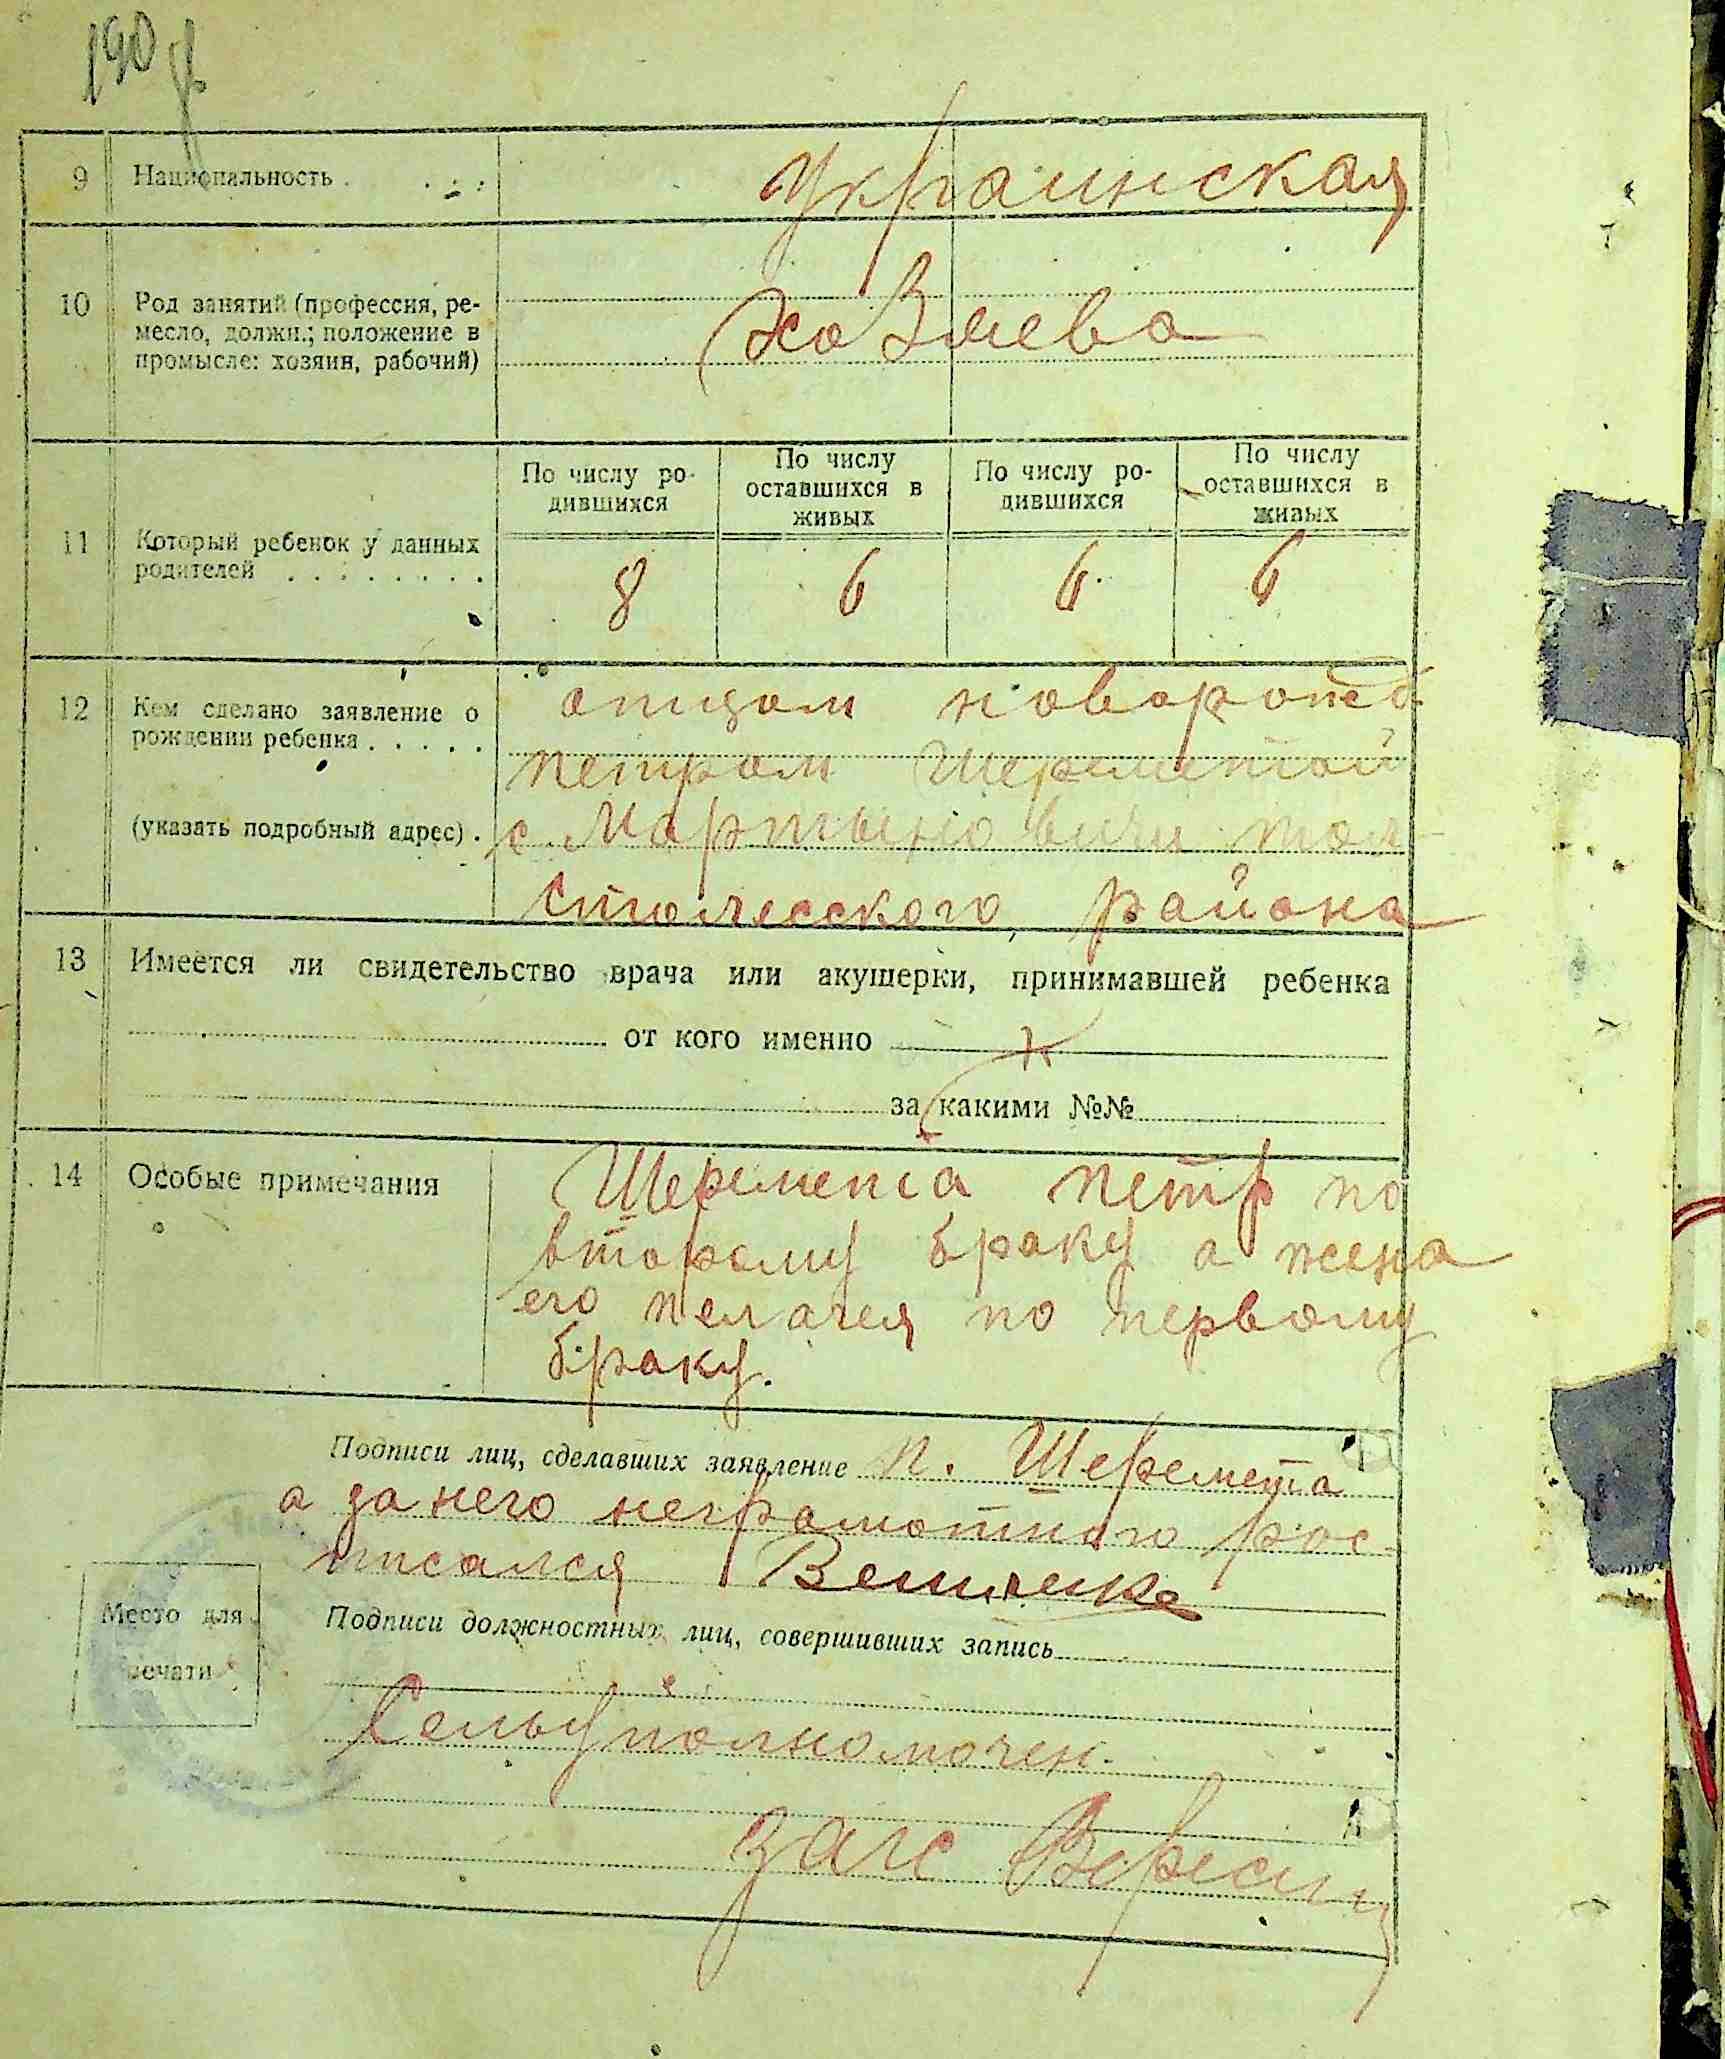 190
9 Национальность . . . . украинская
10 Род занятий (профессия, ре-
месло, должн.; положение в
промысле: хозяин, рабочий)
хозяева
По числу ро-
дившихся
По числу
оставшихся в
живых
По числу ро-
дившихся
По числу
оставшихся в
живых
11 Который ребенок у данных
родителей . . . . . . . .
8 6 6 6
12 Кем сделано заявление о
рождении ребенка . . . . .
(указать подробный адрес) .
отцом
петром Шереметой
с. Мартыновичи тол-
столесского района
13 Имеется ли свидетельство врача или акушерки, принимавшей ребенка
от кого именно
за какими №№
14 Особые примечания
Шеремета петр по
второму браку а жена
его пелагея по первому
браку.
Подписи лиц, сделавших заявление п. Шеремета
а за него неграмотного рос-
писался
Место для
печати
Подписи должностных лиц, совершивших запись
Сельуполномочен.
загс